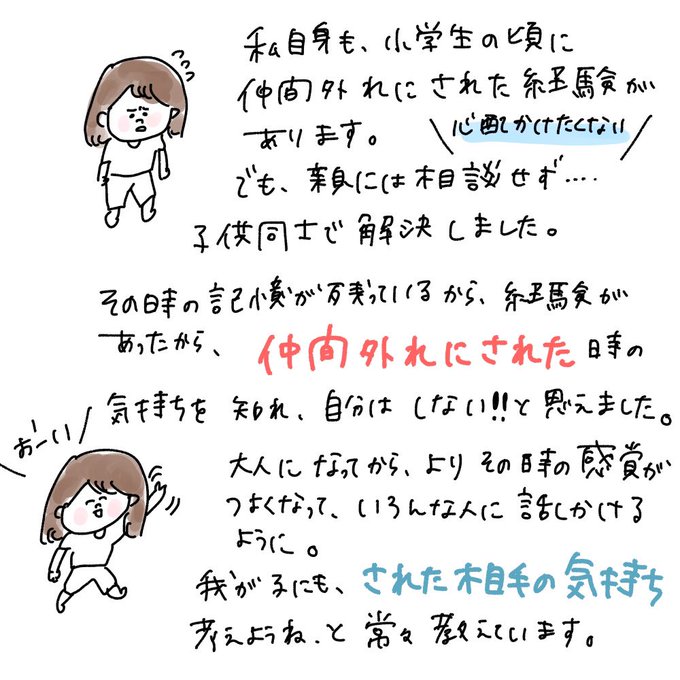 私自身も、小学生の頃に
仲間外れにされた経験が
あります。
心配かけたくない
でも、親には相談せず‥‥
子供同士で解決しました。
その時の記憶が残っているから、経験が
あったから、仲間外れにされた時の
気持ちを知れ、自分はしない!!と思えました。
おーい
大人になってから、よりその時の感覚が
つよくなって、いろんな人に話しかける
ように。
我が子にも、された相手の気持ち
考えようね、と常々教えています。